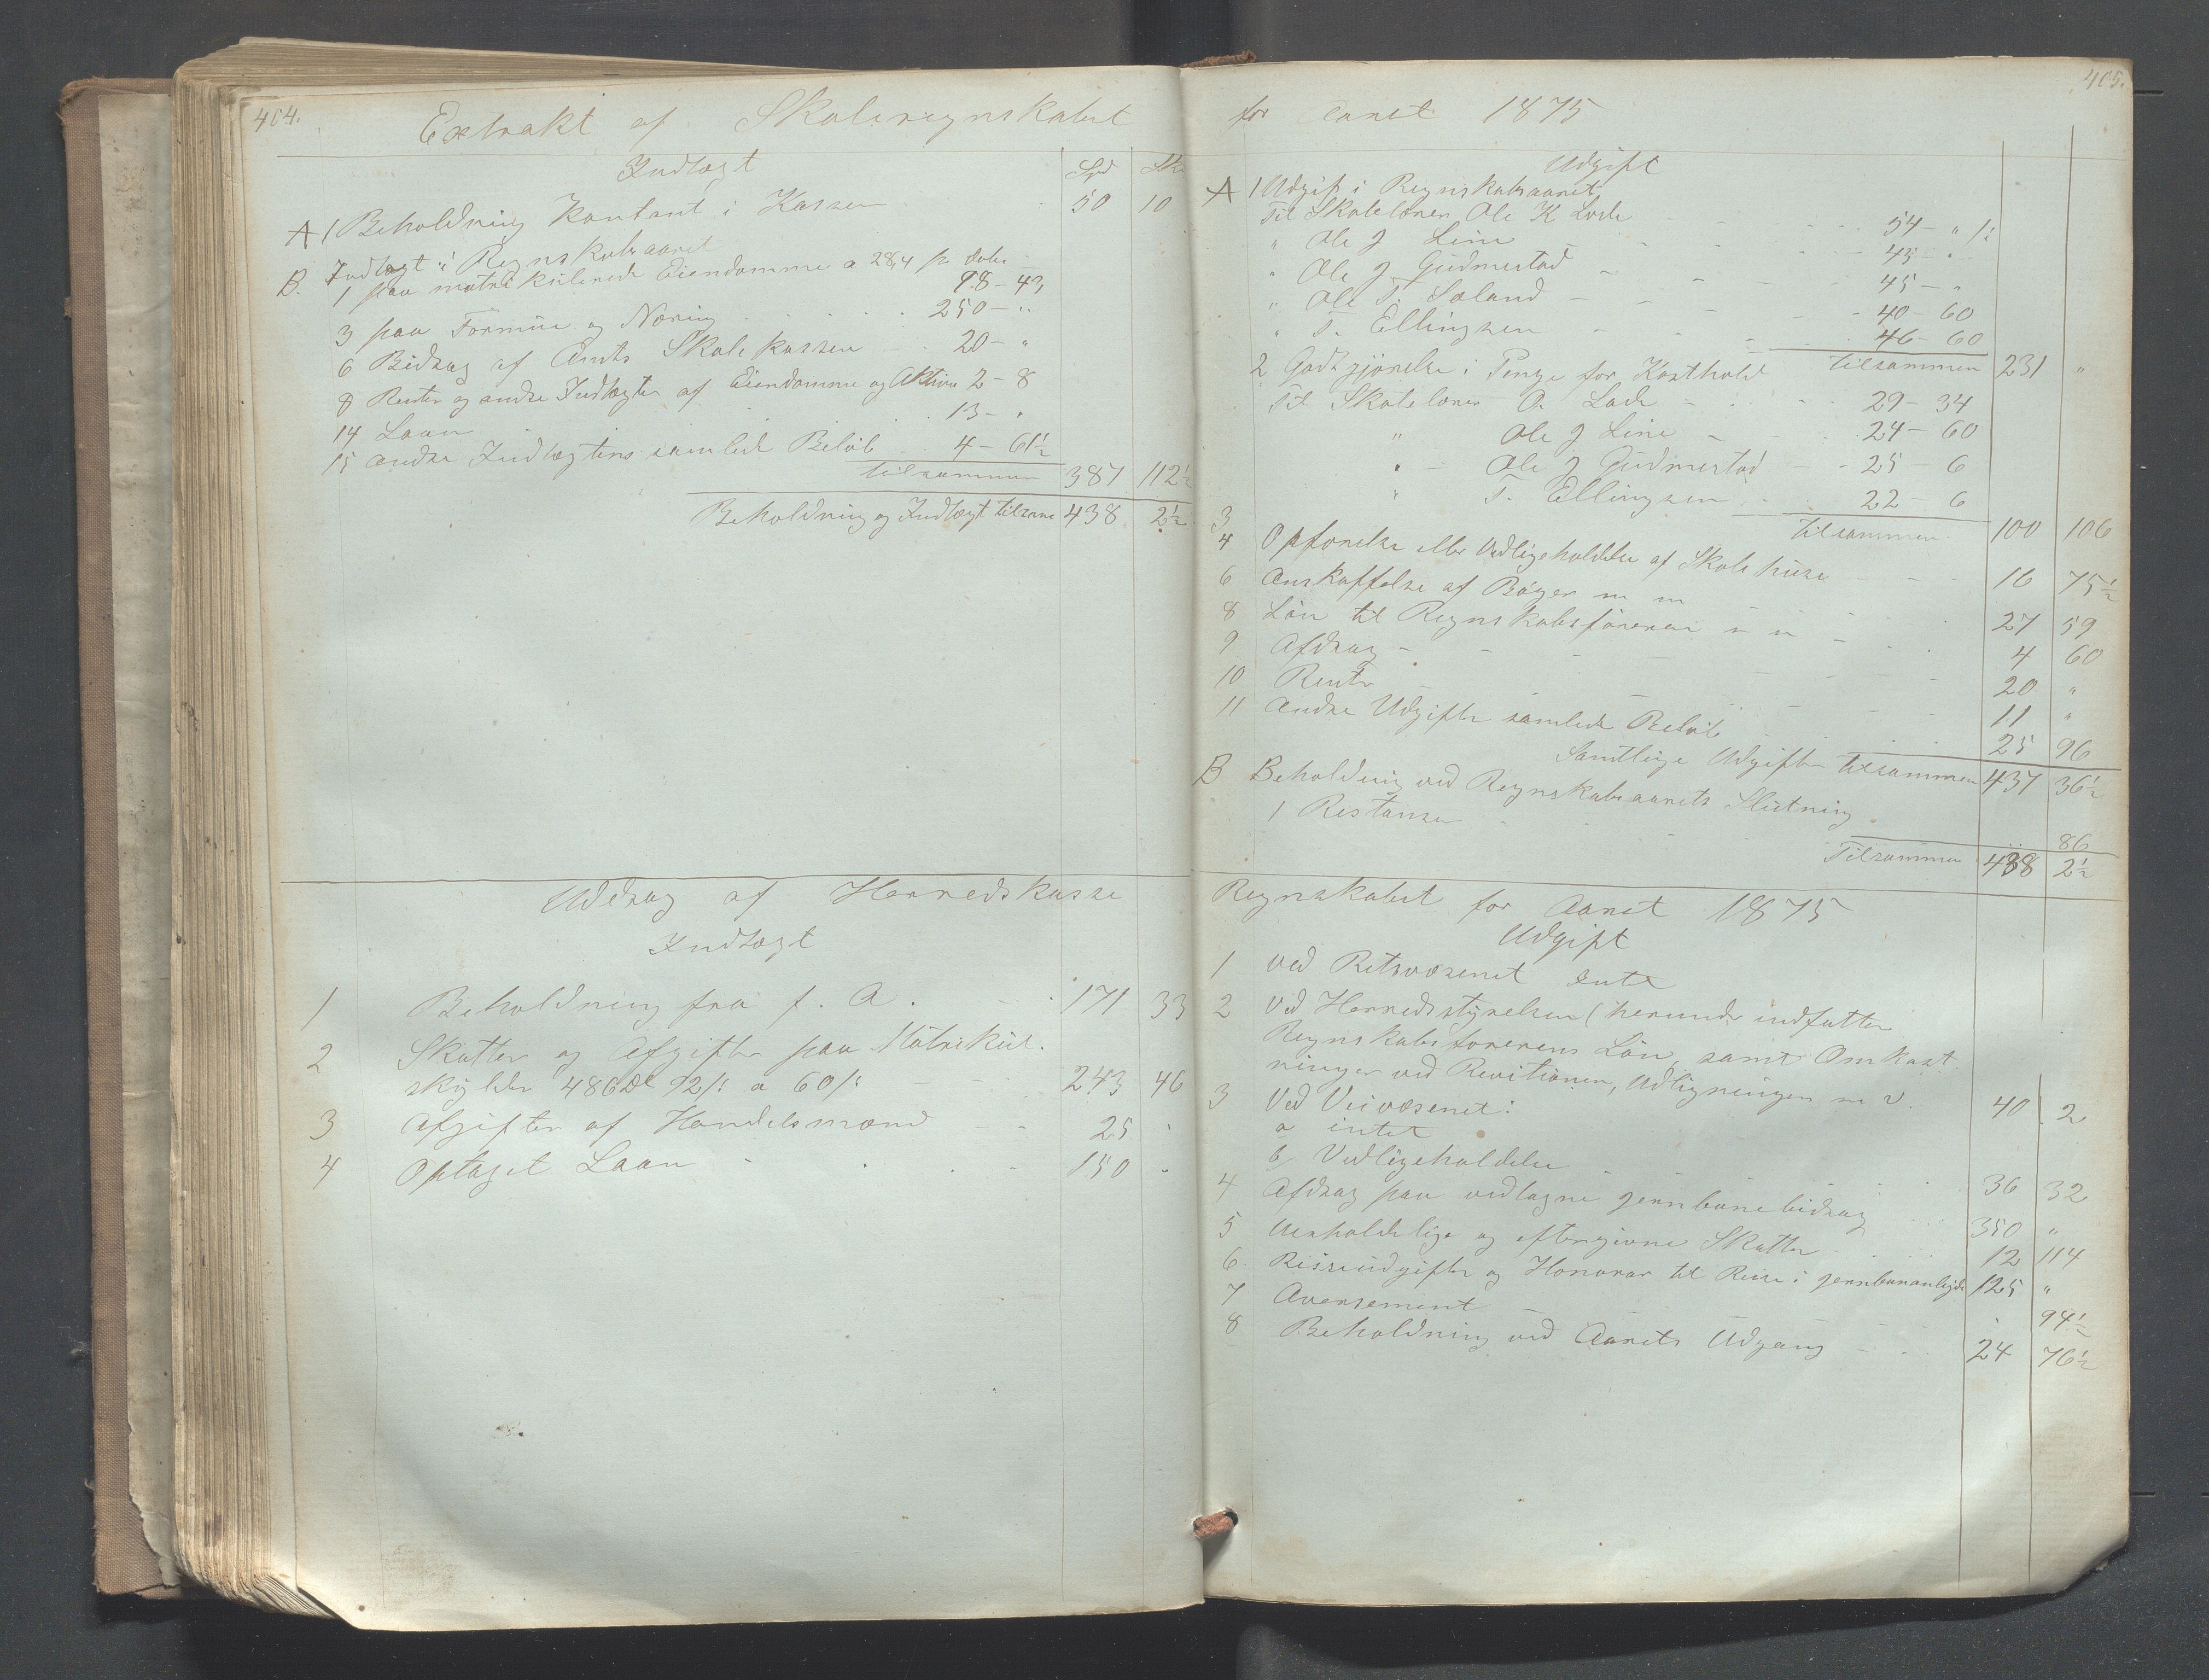 404.
Extrakt af Skoleregnskabet
Indtægt
Spd Sk
A 1 Beholdning kontant i Kassen 50 10
B. Indtægt i Regnskabsaaret
1 paa matrikulerede Eiendomme a 28,4 pr daler 98 - 43
3 paa Formue og Næring 250 - "
6 Bidrag af Amts Skolekassen 20 - "
8 Renter og andre Indtægter af Eiendomme og Aktiva 2 - 8
14 Laan 13 - "
15 andre Indtægters samlede Beløb 4 - 61½
tilsammen 387 112½
Beholdning og Indtægt tilsam 438 2½
Uddrag af Herredskasse
Indtægt
1 Beholdning fra f. A. 171 33
2 Skatter og Afgifter paa Matrikul.
skylden 486 Dl 92 /: a 60 /: 243 46
3 Afgifter af Handelsmænd 25 "
4 Optaget Laan 150 "
405.
for Aaret 1875
Udgift
A 1 Udgift i Regnskabsaaret
Til Skolelærer Ole K Lode 54 - " /:
" Ole J Line 45 - "
" Ole J Gudmestad 45 - "
" Ole T. Sæland 40 - 60
" T. Ellingsen 46 - 60
tilsammen 231 "
2 Godtgjørelse i Penge for Kosthold
Til Skolelærer O. Lode 29 - 34
" Ole J Line 24 - 60
" Ole J Gudmestad 25 - 6
" T. Ellingsen 22 - 6
3 tilsammen 100 106
4 Opførelse eller Vedligeholdelse af Skolehuse 16 75½
6 Anskaffelse af Bøger m m 27 59
8 Løn til Regnskabsføreren m m 4 60
9 Afdrag 20 "
10 Renter 11 "
11 andre Udgifter samlede Beløb 25 96
Samtlige Udgifter tilsammen 437 36½
B Beholdning ved Regnskabsaarets Slutning
1 Restanser " 86
Tilsammen 438 2½
Regnskabet for Aaret 1875
Udgift
1 Ved Retsvæsenet Intet
2 Ved Herredsstyrelsen (herunder indfattet
Regnskabsførerens Løn, samt Omkost
ninger ved Revitionen, Udligningen m v. 40 2
3 Ved Veivæsenet:
a intet
b, Vedligeholdelse 36 32
4 Afdrag paa vedtagne jernbanebidrag 350 "
5 Uerholdelige og eftergivne Skatter 12 114
6. Reiseudgifter og Honorar til Reise i jernbananligde 125 "
7 Aversement " 94½
8 Beholdning ved Aarets Udgang 24 76½